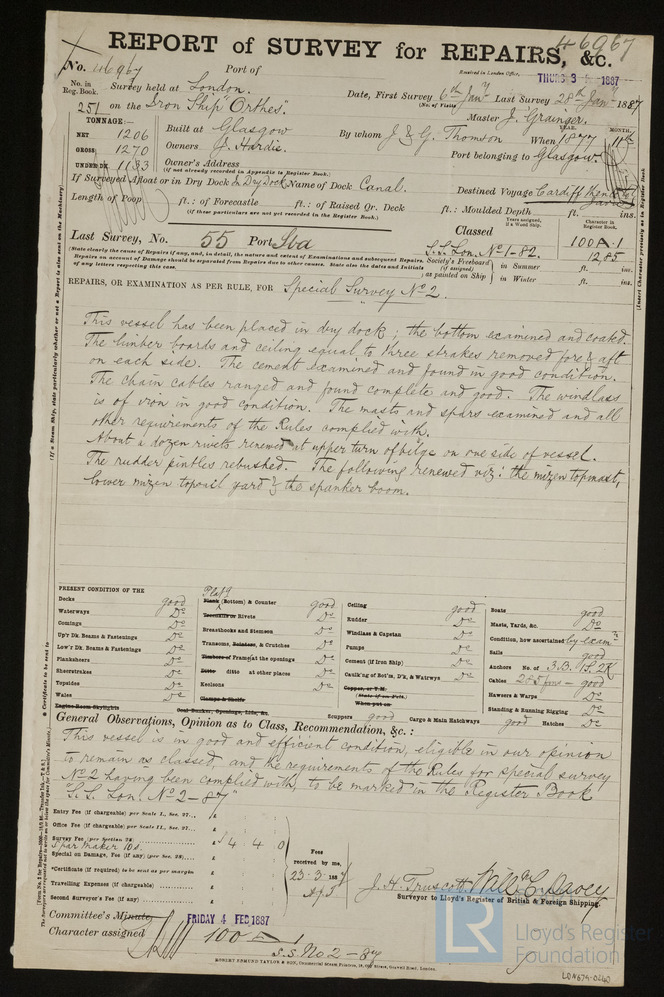 46967
REPORT of SURVEY for REPAIRS, &c.
No. 46967 Port of
Received in London Office, THURS 3 1887
No. in Reg. Book. Survey held at London. Date, First Survey 6th Jany Last Survey 28th Jany 1887
(No. of Visits)
251 on the Iron Ship "Orthes". Master J. Grainger.
TONNAGE:— YEAR. MONTH.
NET 1206 Built at Glasgow By whom J & G. Thomson When 1877 11th
GROSS 1270 Owners J. Hardie. Port belonging to Glasgow.
UNDER DK. 1133 Owner's Address
(If not already recorded in Appendix to Register Book.)
If Surveyed Afloat or in Dry Dock In Dry Dock Name of Dock Canal. Destined Voyage Cardiff
Length of Poop ft.: of Forecastle ft.: of Raised Qr. Deck ft.: Moulded Depth ft. ins.
(if these particulars are not yet recorded in the Register Book.)
Years assigned, if a Wood Ship. Character in Register Book.
Last Survey, No. 55 Port Classed
S.S. Lon. No 1-82. 100 A.1
12,85
(State clearly the cause of Repairs if any, and, in detail, the nature and extent of Examinations and subsequent Repairs.
Repairs on account of Damage should be separated from Repairs due to other causes. State also the dates and Initials
of any letters respecting this case.
Society's Freeboard (if assigned) as painted on Ship in Summer ft. ins.
in Winter ft. ins.
REPAIRS, OR EXAMINATION AS PER RULE, FOR Special Survey No 2.
This vessel has been placed in dry dock; the bottom examined and coated.
The limber boards and ceiling equal to three strakes removed fore & aft
on each side. The cement examined and found in good condition.
The chain cables ranged and found complete and good. The windlass
is of iron in good condition. The masts and spars examined and all
other requirements of the Rules complied with.
About a dozen rivets renewed at upper turn of bilge on one side of vessel.
The rudder pintles rebushed. The following renewed viz: the mizen topmast,
lower mizen topsail yard & the spanker boom.
PRESENT CONDITION OF THE
Decks good
Waterways Do
Comings Do
Up'r Dk. Beams & Fastenings Do
Low'r Dk. Beams & Fastenings Do
Planksheers Do
Sheerstrakes Do
Topsides Do
Wales Do
Engine Room Skylights
Platg
Plank (Bottom) & Counter good
Treenails or Rivets Do
Breasthooks and Stemson Do
Transoms, Pointers, & Crutches Do
Timbers of Frame at the openings Do
Ditto ditto at other places Do
Keelsons Do
Clamps & Shelfs
Coal Bunker, Openings, Lids, &c.
Ceiling good
Rudder Do
Windlass & Capstan Do
Pumps Do
Cement (if Iron Ship) Do
Caulk'ng of Bot'm, D'k, & Watrwys Do
Copper, or Y.M.
(State if on Felt)
When put on
Boats good
Masts, Yards, &c. Do
Condition, how ascertained by examn
Sails good
Anchors No. of 3.B. 1S. 2K
Cables 285 fms — good
Hawsers & Warps Do
Standing & Running Rigging Do
Scuppers good Cargo & Main Hatchways good Hatches Do
General Observations, Opinion as to Class, Recommendation, &c.:
This vessel is in good and efficient condition, eligible in our opinion
to remain as classed, and the requirements of the Rules for special survey
No 2 having been complied with, to be marked in the Register Book
"S.S. Lon. No 2-87"
Entry Fee (if chargeable) per Scale I., Sec. 27... £
Office Fee (if chargeable) per Scale II., Sec. 27... £
Survey Fee (per Section 28) £ 4 4 0
Spar maker 10s.
Special on Damage, Fee (if any) (per Sec. 28) £
*Certificate (if required) to be sent as per margin £
Travelling Expenses (if chargeable) £
Second Surveyor's Fee (if any) £
Fees received by me, 23.3.1887
J. H. Truscott. Will C. Davey
Surveyor to Lloyd's Register of British & Foreign Shipping.
Committee's Minute, FRIDAY 4 FEB 1887
Character assigned 100 A 1
S.S. No 2 - 87
ROBERT EDMUND TAYLOR & SON,
LR Lloyd's Register Foundation
(If a Steam Ship, state particularly whether or not a Report is also sent on the Machinery)
(Insert Character precisely as in Register Book
* Certificate to be sent to